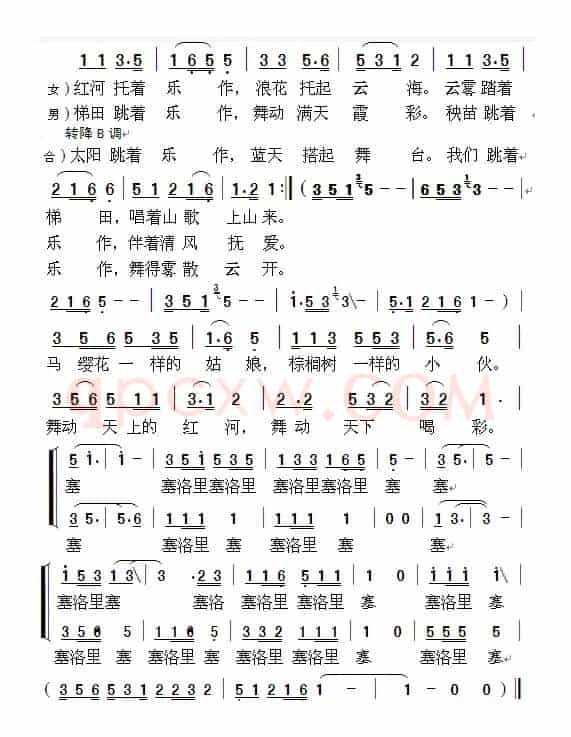 1 1 3·5 | 1 6 5 5 | 3 3 5·6 | 5 3 1 2 | 1 1 3·5 |
女)红河 托着 乐 作，浪花 托起 云 海。云雾 踏着
男)梯田 跳着 乐 作，舞动 满天 霞 彩。秧苗 跳着
转降B调
合)太阳 跳着 乐 作，蓝天 搭起 舞 台。我们 跳着
2 1 6 6 | 5 1 2 1 6 5 | 1·2 1 2 :‖ ( 3 5 1 3 5 - - | 6 5 3 1 3 - - |
梯 田，唱着山 歌 上山 来。
乐 作，伴着清 风 抚 爱。
乐 作，舞得雾 散 云 开。
2 1 6 5 - - | 3 5 1 3 5 - - | 1·5 3 1 3\ | 5·1 2 2 1 6 | 1 - - )
3 5 6 5 3 5 | 1·6 5 | 1 1 3 5 5 3 | 5·6 5 |
马 缨花 一 样的 姑 娘，棕榈树 一样的 小 伙。
qpcxw.com
舞动 天 上的 红 河，舞 动 天下 喝 彩。
5 1· | 1 - | 3 5 1 3 5 1 | 3 3 3 1 6 5 | 5 - | 3 5· | 5 - |
塞 塞洛里塞洛里 塞洛里塞洛里 塞 塞
3 5· | 5·6 | 1 1 1 1 | 1 1 1 1 | 0 0 | 1 3· | 3 - |
塞 塞洛里 塞 塞洛里 塞 塞
1 5 3 1 3\ | 3 ·2 3 | 1 1 6 5 1 5 | 1 0 | 1 1 1 1\ |
塞洛里塞 塞洛 塞洛里 塞洛里 塞 塞洛里 塞
塞洛里 塞 塞洛里 塞 塞洛里 塞洛里 塞 塞洛里 塞
( 3 5 6 5 3 5 1 2 2 3 2 | 5 1 2 1 6 1 - | 1 - 0 0 )‖